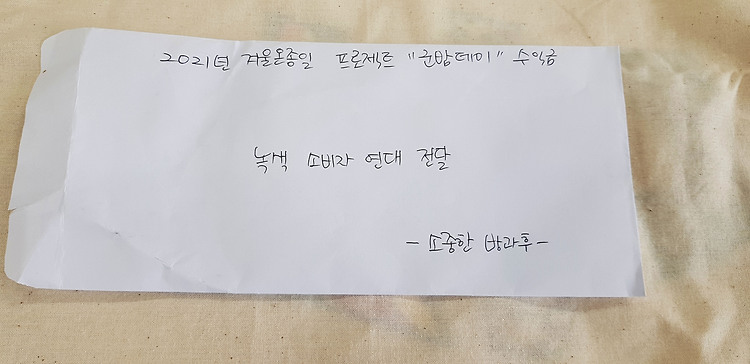 2021년 겨울온종일 프로젝트 "군밤데이" 수익금
녹색 소비자 연대 전달
- 소중한 방과후 -